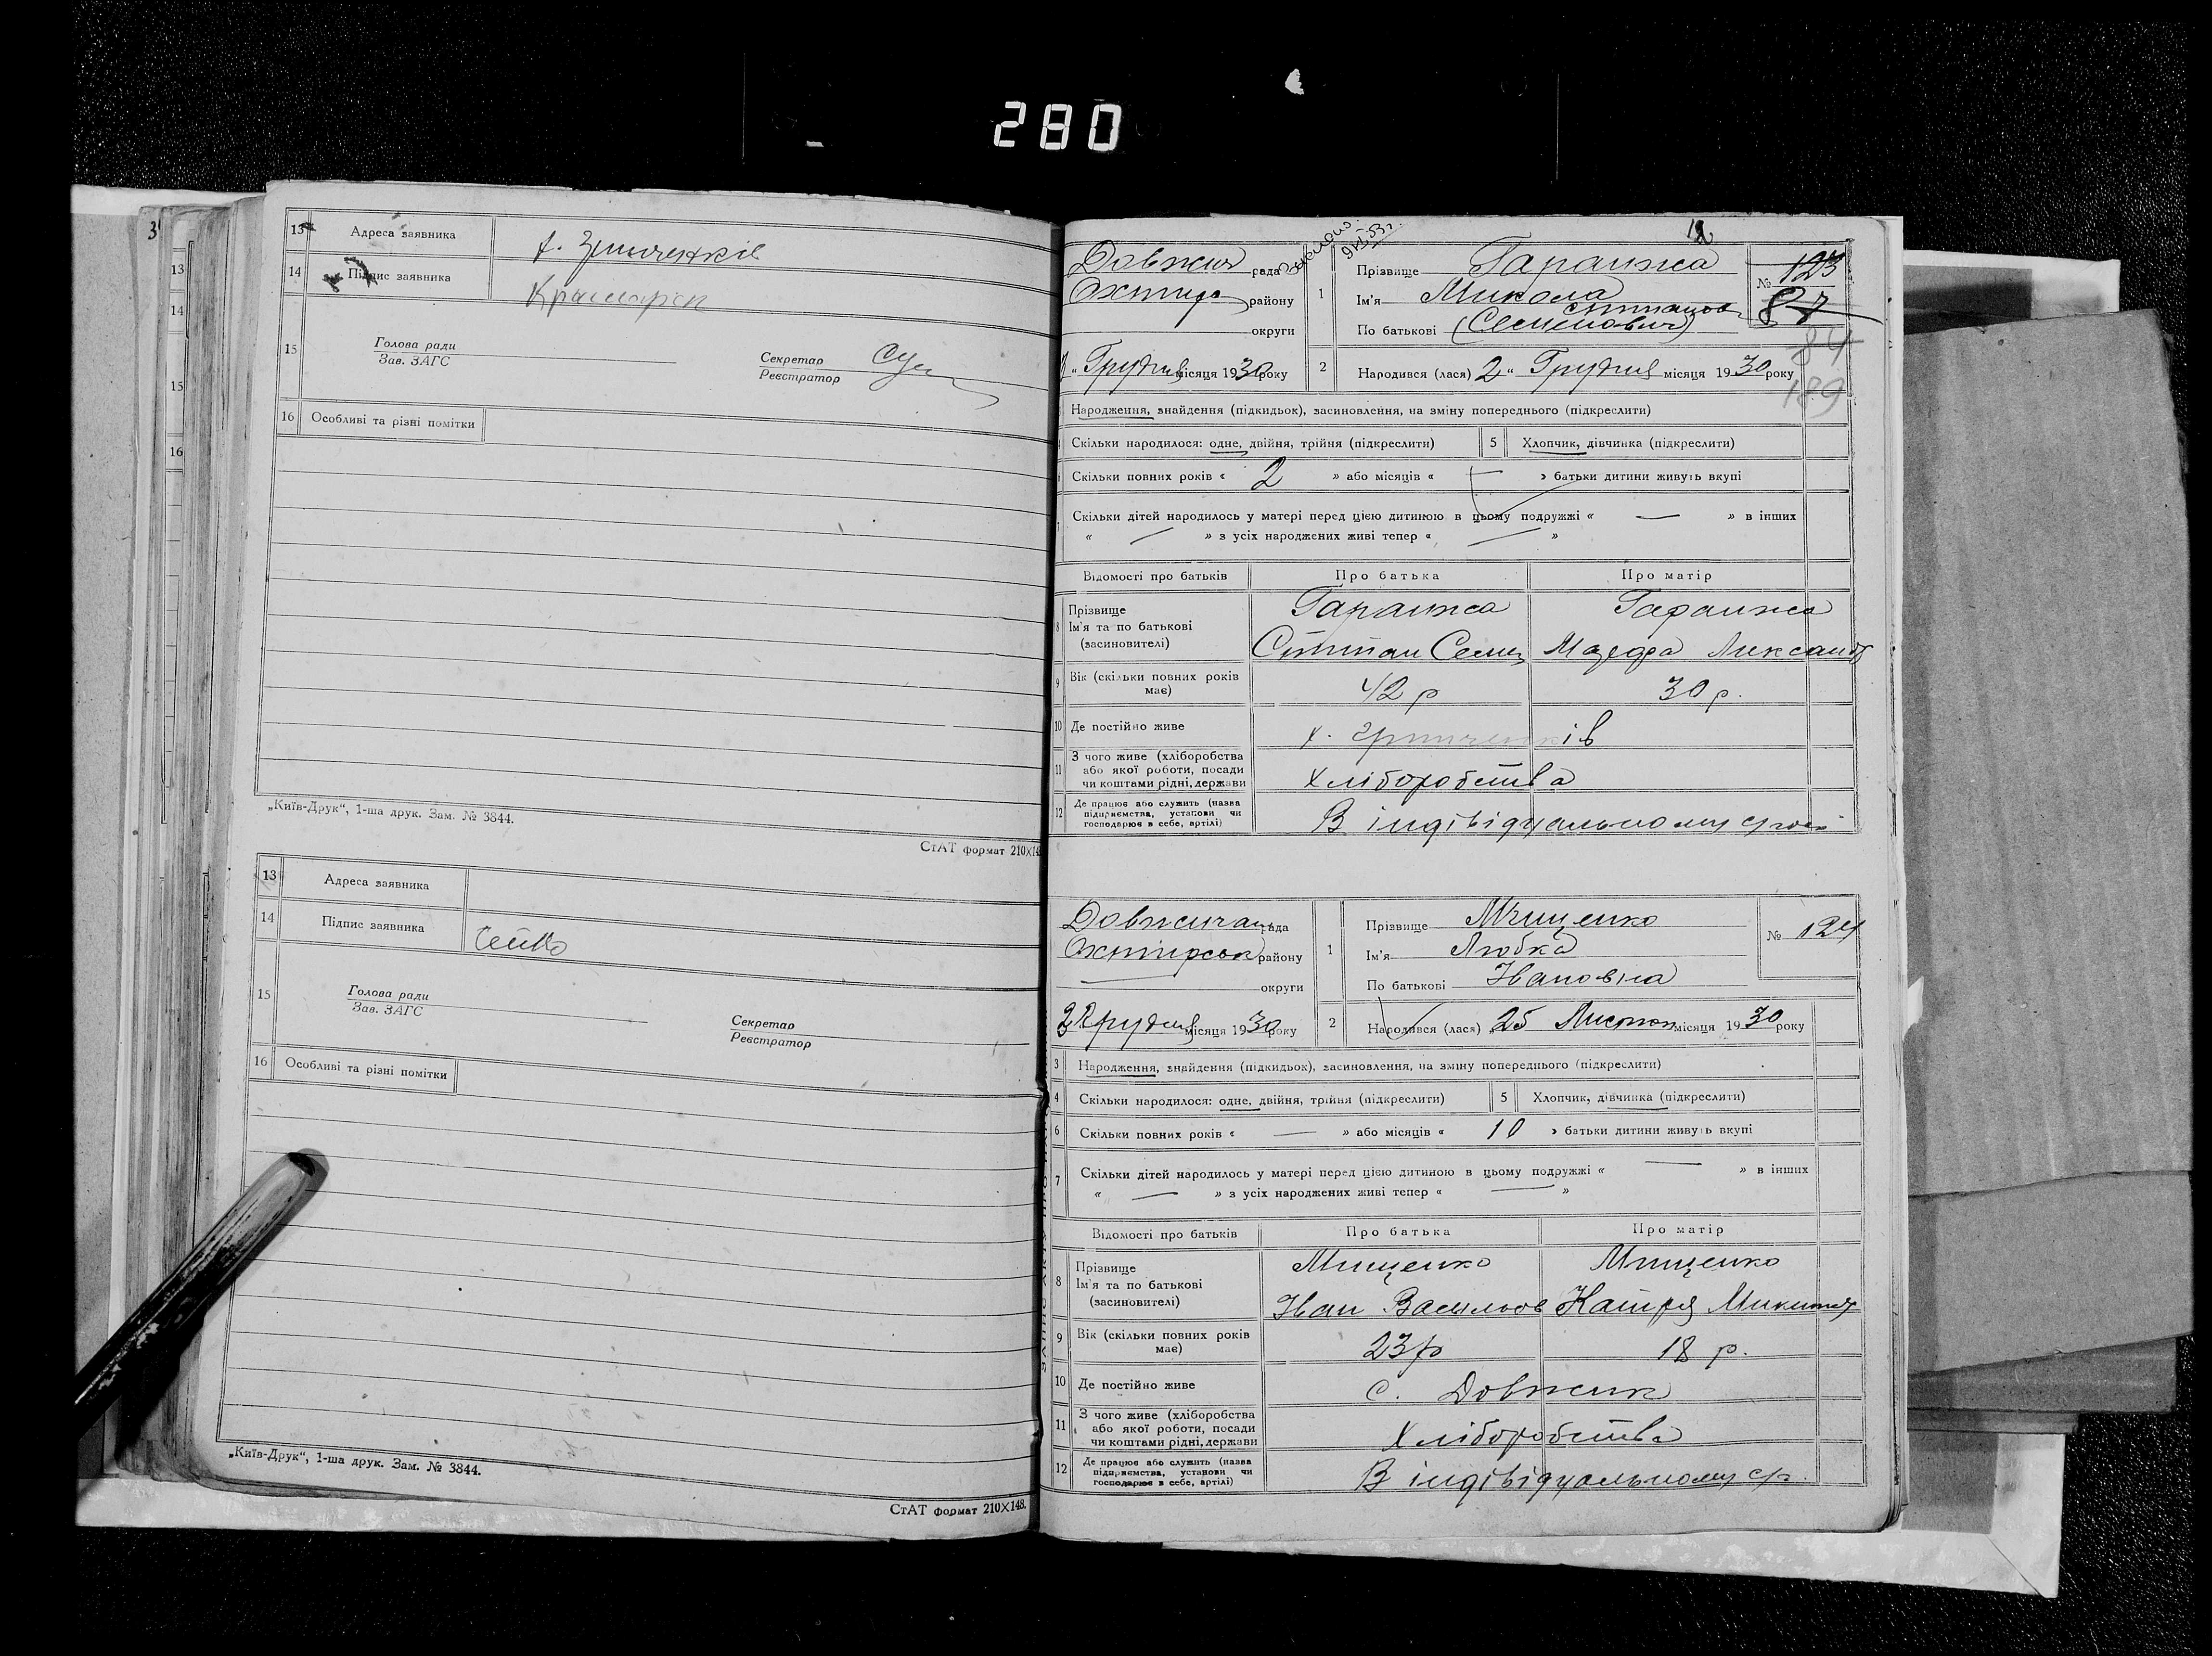 280
13 Адреса заявника
14 Підпис заявника
15 Голова ради
Зав. ЗАГС
Секретар
Реєстратор
16 Особливі та різні помітки
„Київ-Друк“, 1-ша друк. Зам. № 3844.
СтАТ формат 210×14
13 Адреса заявника
14 Підпис заявника
15 Голова ради
Зав. ЗАГС
Секретар
Реєстратор
16 Особливі та різні помітки
„Київ-Друк“, 1-ша друк. Зам. № 3844.
СтАТ формат 210×148.
рада
району
округи
Грудня місяця 1930 року
1 Прізвище Гаранжа
Ім'я Микола
По батькові (Семенович)
№ 123
87
84
189
2 Народився (лася) 2 „ Грудня місяця 1930 року
Народження, знайдення (підкидьок), засиновлення, на зміну попереднього (підкреслити)
Скільки народилося: одне, двійня, трійня (підкреслити) 5 Хлопчик, дівчинка (підкреслити)
Скільки повних років « 2 » або місяців « — » батьки дитини живуть вкупі
7 Скільки дітей народилось у матері перед цією дитиною в цьому подружжі « — » в інших
« — » з усіх народжених живі тепер « — »
Відомості про батьків Про батька Про матір
8 Прізвище Гаранжа Гаранжа
Ім'я та по батькові
(засиновителі) Степан Семен
9 Вік (скільки повних років має) 42 р 30 р.
10 Де постійно живе
11 З чого живе (хліборобства або якої роботи, посади чи коштами рідні, держави Хліборобства
12 Де працює або служить (назва підприємства, установи чи господарює в себе, артілі) В індівідуальному
рада
району
округи
Грудня місяця 1930 року
1 Прізвище Мищенко
Ім'я Любка
По батькові Івановна
№ 124
2 Народився (лася) 25 місяця 1930 року
3 Народження, знайдення (підкидьок), засиновлення, на зміну попереднього (підкреслити)
4 Скільки народилося: одне, двійня, трійня (підкреслити) 5 Хлопчик, дівчинка (підкреслити)
6 Скільки повних років « — » або місяців « 10 » батьки дитини живуть вкупі
7 Скільки дітей народилось у матері перед цією дитиною в цьому подружжі « — » в інших
« — » з усіх народжених живі тепер « — »
Відомості про батьків Про батька Про матір
8 Прізвище Мищенко Мищенко
Ім'я та по батькові
(засиновителі) Іван Васильов Катря
9 Вік (скільки повних років має) 23 р 18 р.
10 Де постійно живе с. Довжик
11 З чого живе (хліборобства або якої роботи, посади чи коштами рідні, держави Хліборобства
12 Де працює або служить (назва підприємства, установи чи господарює в себе, артілі) В індівідуальному